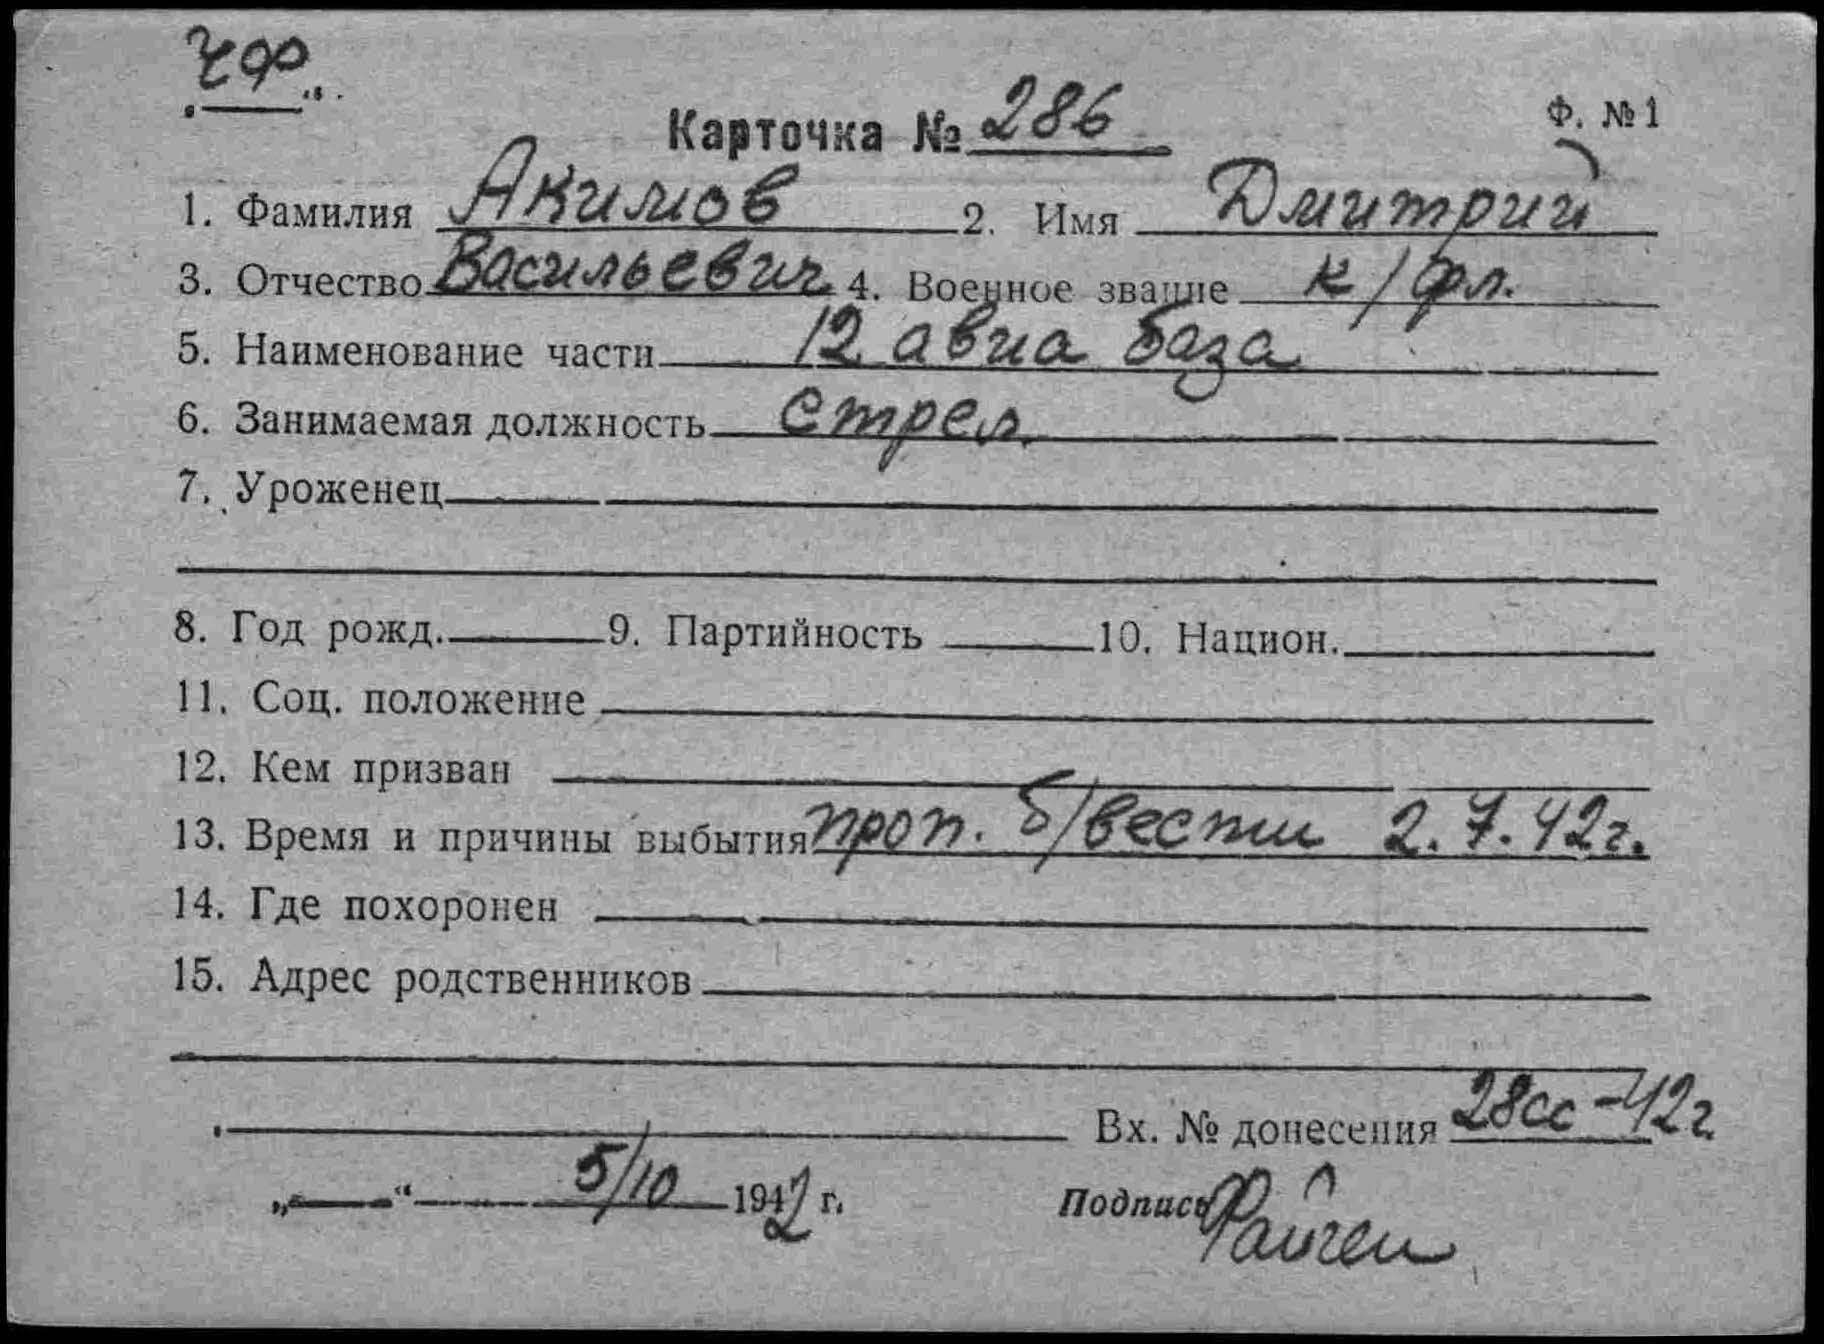 ЧФ
Карточка № 286 Ф. № 1
1. Фамилия Акимов 2. Имя Дмитрий
3. Отчество Васильевич 4. Военное звание к/фл.
5. Наименование части 12 авиа база
6. Занимаемая должность стрел.
7. Уроженец
8. Год рожд. 9. Партийность 10. Национ.
11. Соц. положение
12. Кем призван
13. Время и причины выбытия проп. б/вести 2.7.42г.
14. Где похоронен
15. Адрес родственников
Вх. № донесения 28сс-42г
„ “ 5/10 1942 г. Подпись